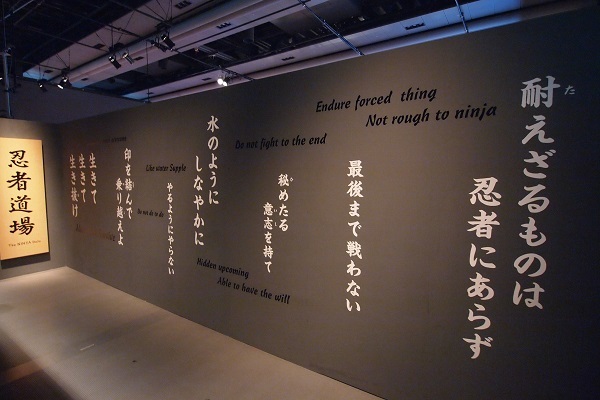 耐えざるものは
た
忍者にあらず
Endure forced thing
Not rough to ninja
最後まで戦わない
Do not fight to the end
秘めたる
ひ
意志を持て
いし
Hidden upcoming
Able to have the will
水のように
しなやかに
Like water Supple
やるようにやらない
Do not do to do
印を結んで
乗り越えよ
生きて
生きて
生き抜け
忍者道場